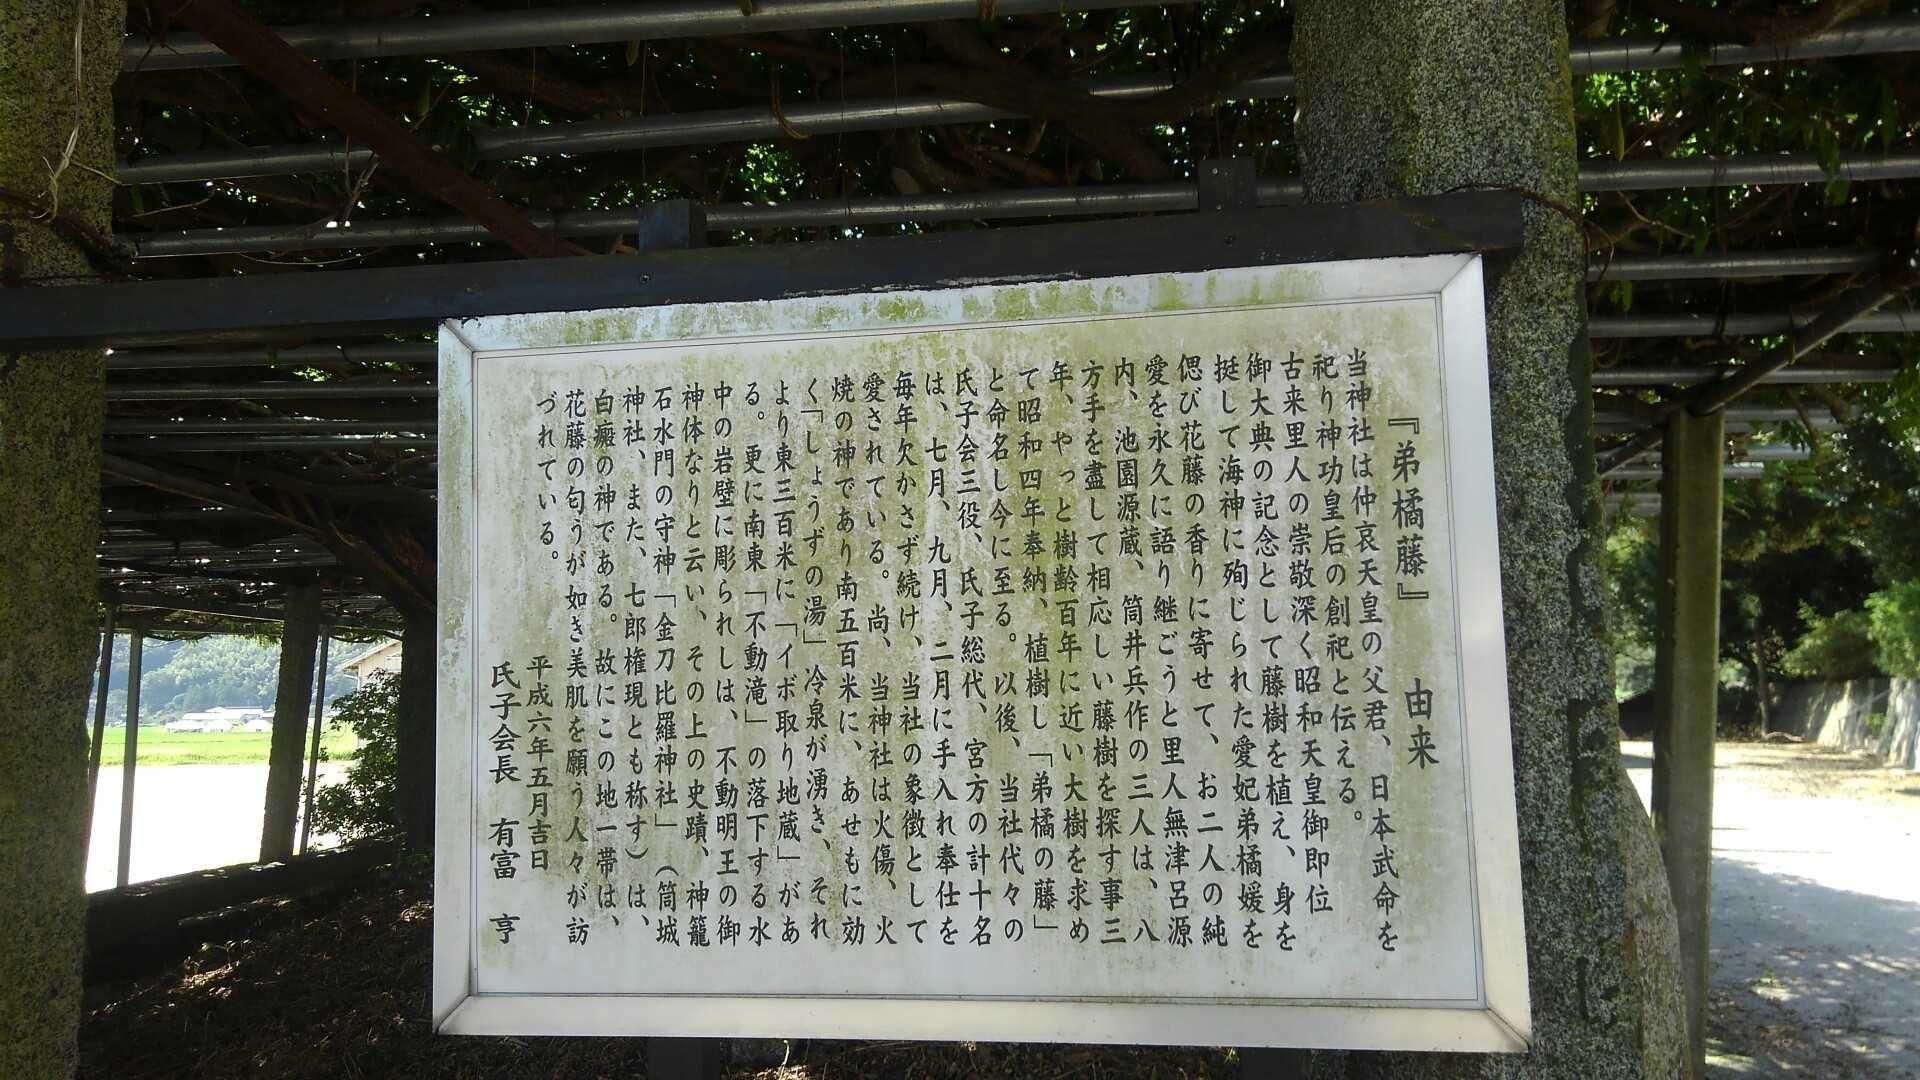 『弟橘藤』 由来
当神社は仲哀天皇の父君、日本武命を
祀り神功皇后の創祀と伝える。
古来里人の崇敬深く昭和天皇御即位
御大典の記念として藤樹を植え、身を
挺して海神に殉じられた愛妃弟橘媛を
偲び花藤の香りに寄せて、お二人の純
愛を永久に語り継ごうと里人無津呂源
内、池園源蔵、筒井兵作の三人は、八
方手を盡して相応しい藤樹を探す事三
年、やっと樹齢百年に近い大樹を求め
て昭和四年奉納、植樹し「弟橘の藤」
と命名し今に至る。以後、当社代々の
氏子会三役、氏子総代、宮方の計十名
は、七月、九月、二月に手入れ奉仕を
毎年欠かさず続け、当社の象徴として
愛されている。尚、当神社は火傷、火
焼の神であり南五百米に、あせもに効
く「しょうずの湯」冷泉が湧き、それ
より東三百米に「イボ取り地蔵」があ
る。更に南東「不動滝」の落下する水
中の岩壁に彫られしは、不動明王の御
神体なりと云い、その上の史蹟、神籠
石水門の守神「金刀比羅神社」(筒城
神社、また、七郎権現とも称す)は、
白癜の神である。故にこの地一帯は、
花藤の匂うが如き美肌を願う人々が訪
づれている。
平成六年五月吉日
氏子会長 有富 亨